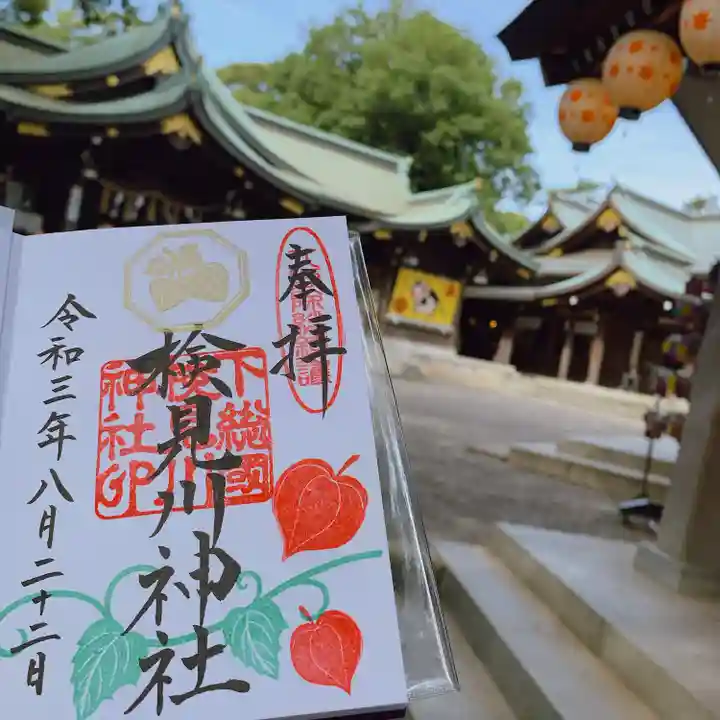 奉拝
検見川神社
下総國
検見川
神社印
令和三年八月二十二日